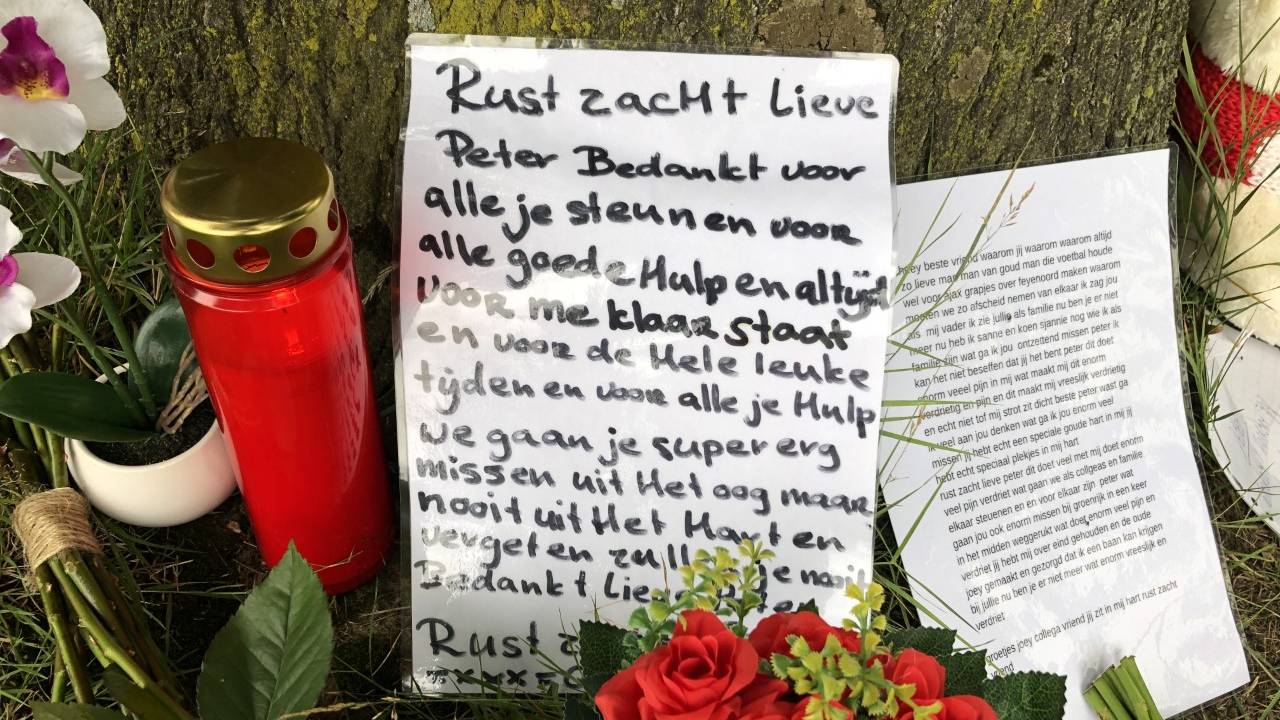 Rust zacht Lieve
Peter Bedankt voor
alle je steun en voor
alle goede Hulp en altijd
voor me klaar staat
en voor de Hele leuke
tijden en voor alle je Hulp
we gaan je super erg
missen uit Het oog maar
nooit uit Het Hart en
vergeten zull je nooit
Bedankt Lieve
Rust z
hoey beste vriend waarom jij waarom waarom altijd
zo lieve man man van goud man die voetbal houde
wel voor ajax grapjes over feyenoord maken waarom
moeten we zo afscheid nemen van elkaar ik zag jou
als mij vader ik zie jullie als familie nu ben je er niet
meer nu heb ik sanne en koen sjannie nog wie ik als
familie zijn wat ga ik jou ontzettend missen peter ik
kan het niet beseffen dat jij het bent peter dit doet
enorm veeel pijn in mij wat maakt mij dit enorm
verdrietig en pijn en dit maakt mij vreeslijk verdrietig
en echt niet tof mij strot zit dicht beste peter wast ga
ik veel aan jou denken wat ga ik jou enorm veel
missen jij hebt echt een speciale goude hart in mij jij
hebt echt speciaal plekjes in mij hart
rust zacht lieve peter dit doet veel met mij doet enorm
veel pijn verdriet wat gaan we als collgeas en familie
elkaar steunen en en voor elkaar zijn peter wat
gaan jou ook enorm missen bij groenrijk in een keer
in het midden weggerukt wat doet enorm veel pijn en
verdriet jij hebt mij over eind gehouden en de oude
joey gemaakt en gezorgd dat ik een baan kan krijgen
bij jullie nu ben je er niet meer wat enorm vreeslijk en
verdriet
groetjes joey collega vriend jij zit in mij hart rust zacht